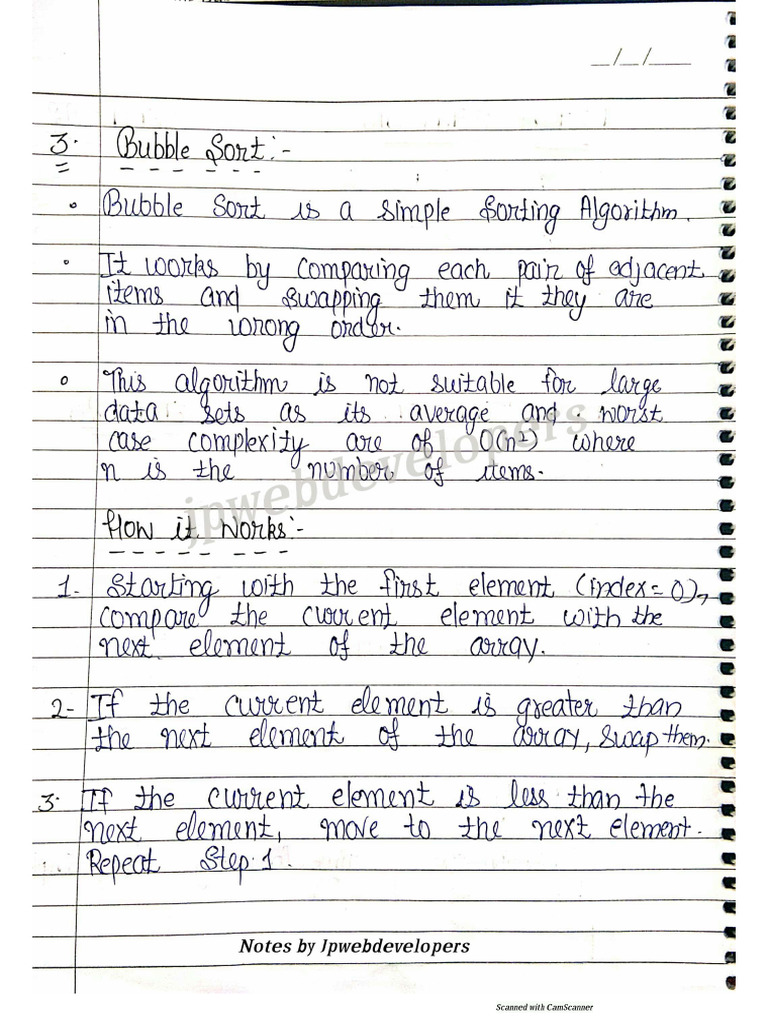 _/_/__
3. Bubble Sort:-
• Bubble Sort is a simple Sorting Algorithm.
• It works by comparing each pair of adjacent
items and swapping them it they are
in the wrong order.
• This algorithm is not suitable for large
data sets as its average and worst
case complexity are of O(n²) where
n is the number of items.
jpwebdevelopers
How it works:-
1. Starting with the first element (index = 0),
compare the current element with the
next element of the array.
2- If the current element is greater than
the next element of the array, swap them.
3. If the current element is less than the
next element, move to the next element.
Repeat Step 1.
Notes by Jpwebdevelopers
Scanned with CamScanner